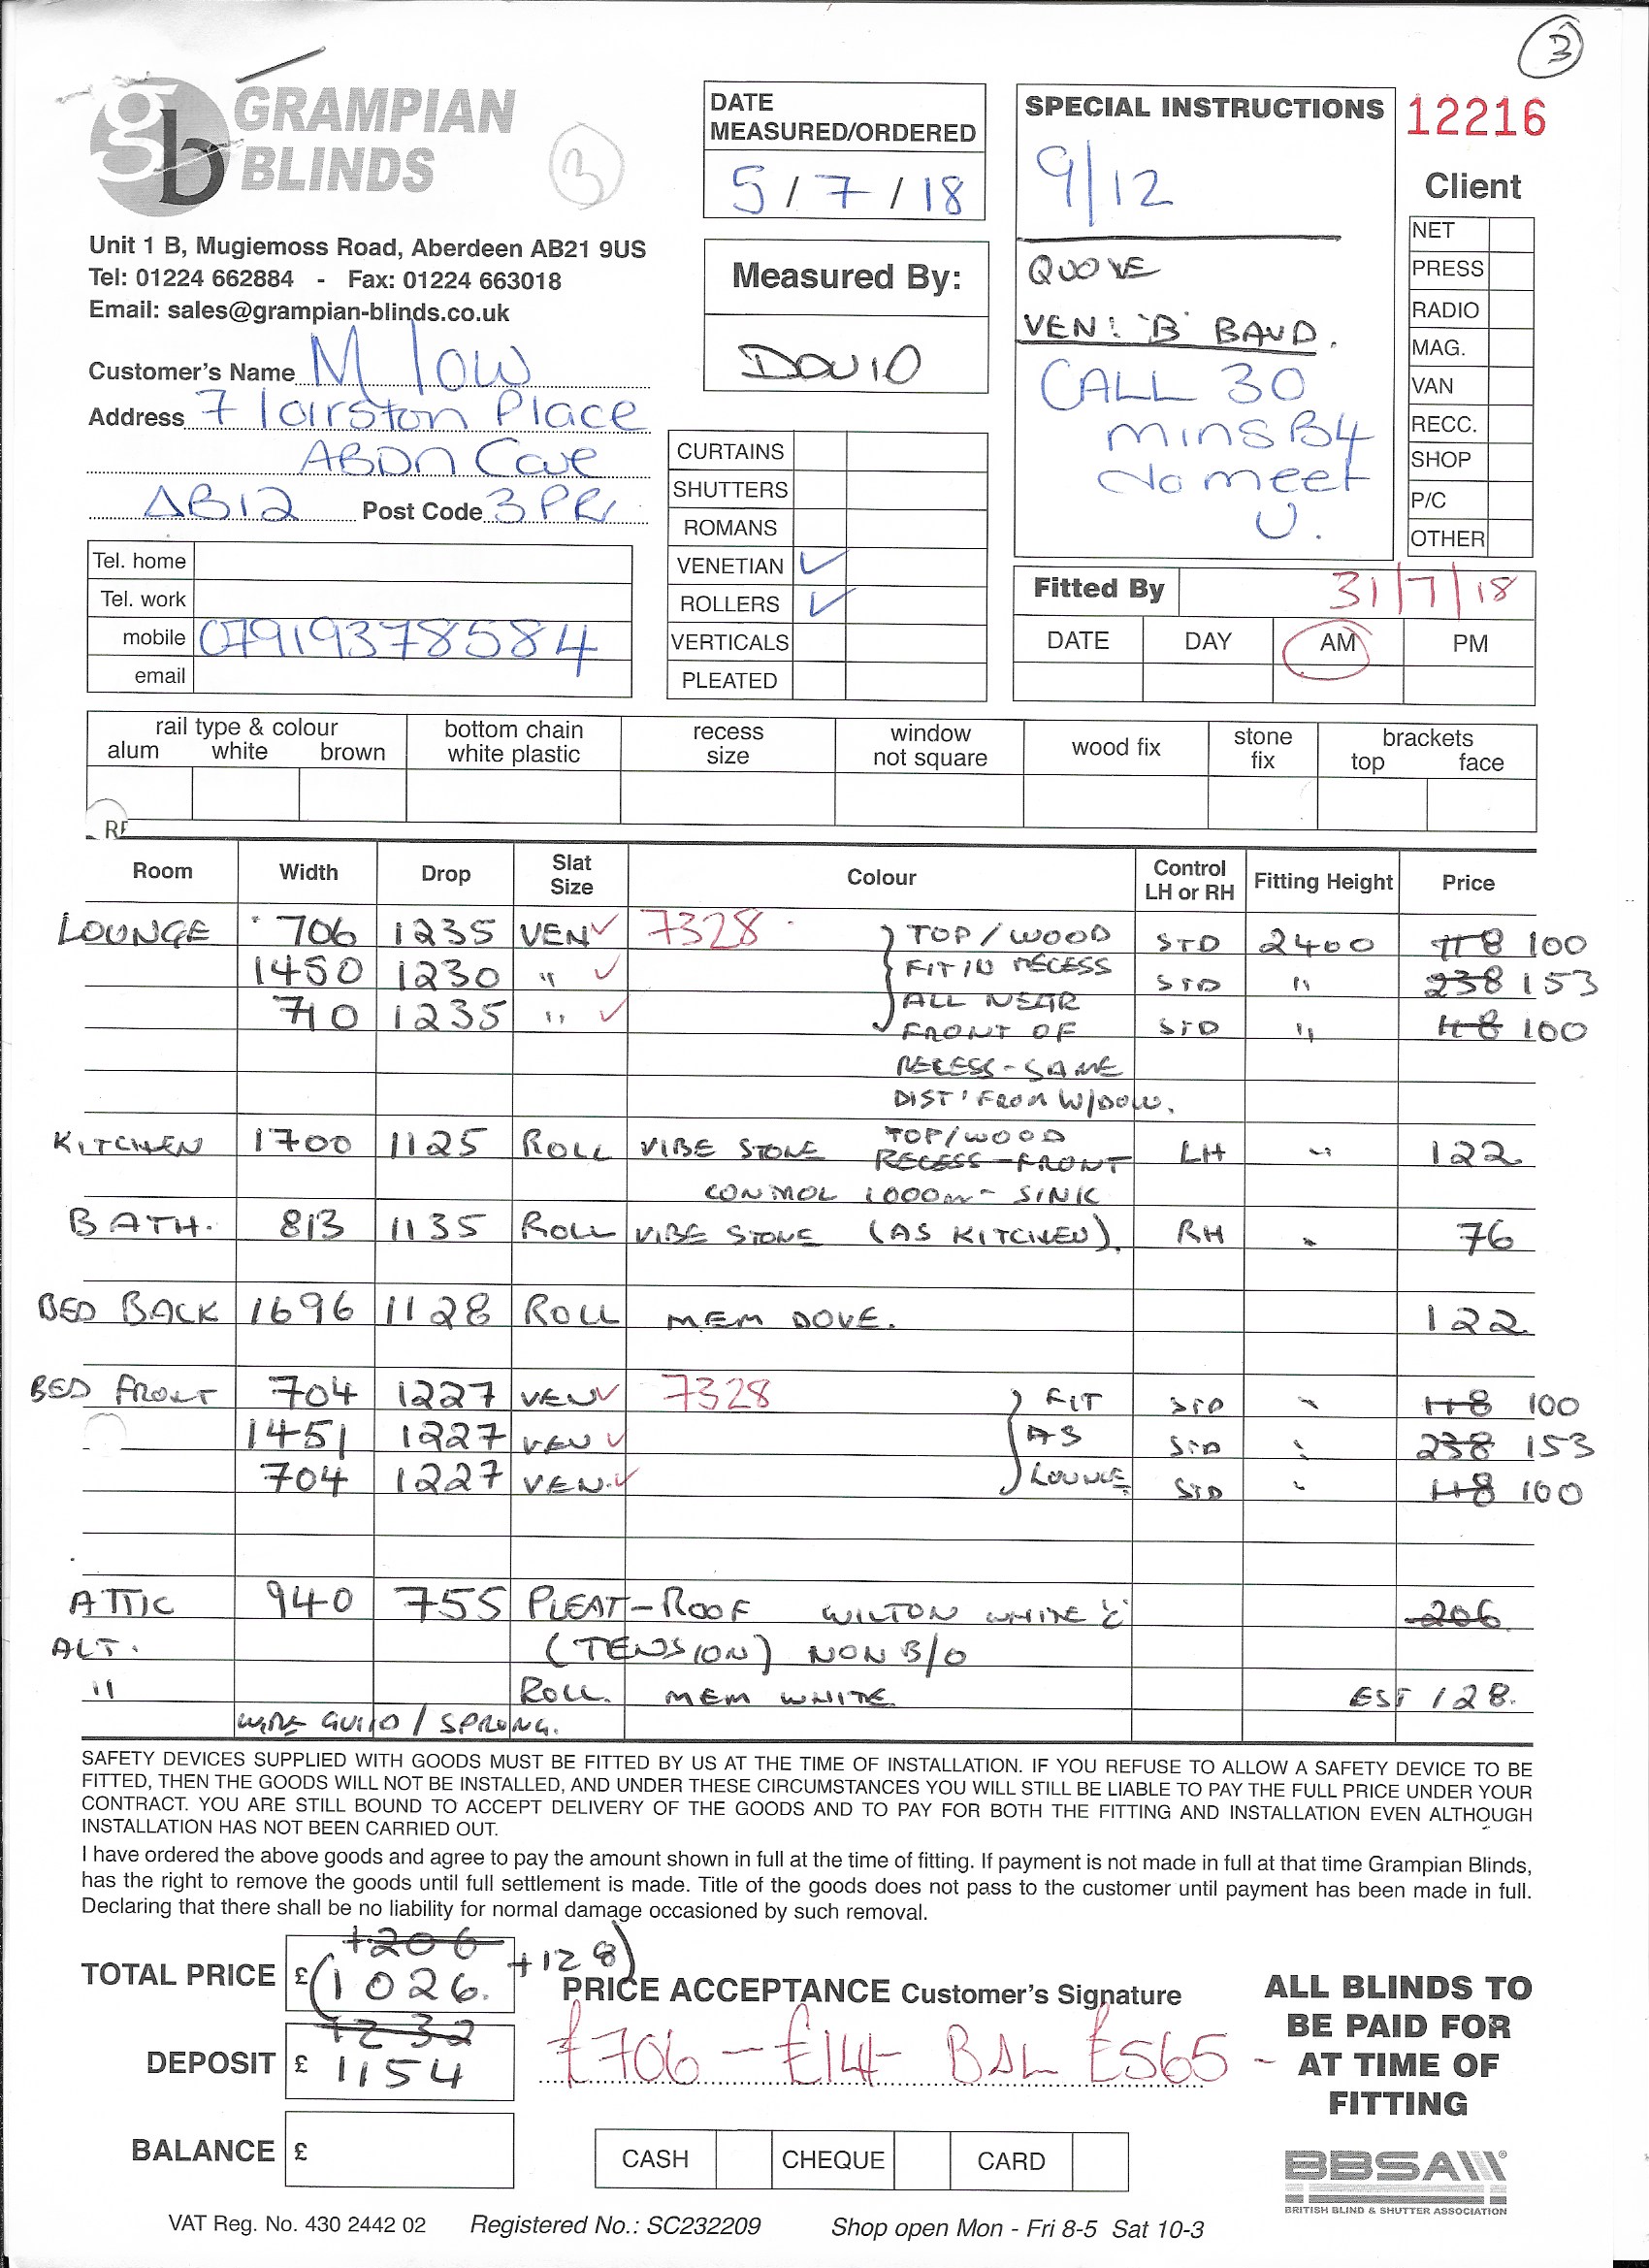 3
GRAMPIAN
BLINDS
gb
3
Unit 1 B, Mugiemoss Road, Aberdeen AB21 9US
Tel: 01224 662884 - Fax: 01224 663018
Email: sales@grampian-blinds.co.uk
Customer's Name M low
Address 7 lairston Place
ABDN Cove
AB12 Post Code 3PR
Tel. home
Tel. work
mobile 07919378584
email
DATE
MEASURED/ORDERED
5/7/18
Measured By:
DAVID
CURTAINS
SHUTTERS
ROMANS
VENETIAN ✓
ROLLERS ✓
VERTICALS
PLEATED
SPECIAL INSTRUCTIONS
9/12
QUOTE
VEN: 'B' BAND.
CALL 30
mins B4
to meet
U.
12216
Client
NET
PRESS
RADIO
MAG.
VAN
RECC.
SHOP
P/C
OTHER
Fitted By 31/7/18
DATE DAY AM PM
rail type & colour
alum white brown
bottom chain
white plastic
recess
size
window
not square
wood fix
stone
fix
brackets
top face
Room Width Drop Slat Size Colour Control LH or RH Fitting Height Price
LOUNGE 706 1235 VEN ✓ 7328 TOP/WOOD STD 2400 118 100
1450 1230 " ✓ FIT IN RECESS STD " 238 153
710 1235 " ✓ ALL NEAR
FRONT OF STD " 118 100
RECESS - SAME
DIST' FROM W/DOW.
KITCHEN 1700 1125 ROLL VIBE STONE TOP/WOOD
RECESS FRONT LH " 122
CONTROL 1000m - SINK
BATH. 813 1135 ROLL VIBE STONE (AS KITCHEN). RH " 76
BED BACK 1696 1128 ROLL MEM DOVE. 122
BED FRONT 704 1227 VEN ✓ 7328 FIT STD " 118 100
1451 1227 VEN ✓ AS STD " 238 153
704 1227 VEN. ✓ LOUNGE STD " 118 100
ATTIC 940 755 PLEAT-ROOF WILTON WHITE 'C' 206
ALT. (TENSION) NON B/O
" ROLL. MEM WHITE EST 128.
WIRE GUIID / SPRUNG.
SAFETY DEVICES SUPPLIED WITH GOODS MUST BE FITTED BY US AT THE TIME OF INSTALLATION. IF YOU REFUSE TO ALLOW A SAFETY DEVICE TO BE
FITTED, THEN THE GOODS WILL NOT BE INSTALLED, AND UNDER THESE CIRCUMSTANCES YOU WILL STILL BE LIABLE TO PAY THE FULL PRICE UNDER YOUR
CONTRACT. YOU ARE STILL BOUND TO ACCEPT DELIVERY OF THE GOODS AND TO PAY FOR BOTH THE FITTING AND INSTALLATION EVEN ALTHOUGH
INSTALLATION HAS NOT BEEN CARRIED OUT.
I have ordered the above goods and agree to pay the amount shown in full at the time of fitting. If payment is not made in full at that time Grampian Blinds,
has the right to remove the goods until full settlement is made. Title of the goods does not pass to the customer until payment has been made in full.
Declaring that there shall be no liability for normal damage occasioned by such removal.
+206
TOTAL PRICE £ (1026. +128)
1232
DEPOSIT £ 1154
BALANCE £
PRICE ACCEPTANCE Customer's Signature
£706 - £14- BAL £565 -
CASH CHEQUE CARD
ALL BLINDS TO
BE PAID FOR
AT TIME OF
FITTING
BBSA
BRITISH BLIND & SHUTTER ASSOCIATION
VAT Reg. No. 430 2442 02 Registered No.: SC232209 Shop open Mon - Fri 8-5 Sat 10-3